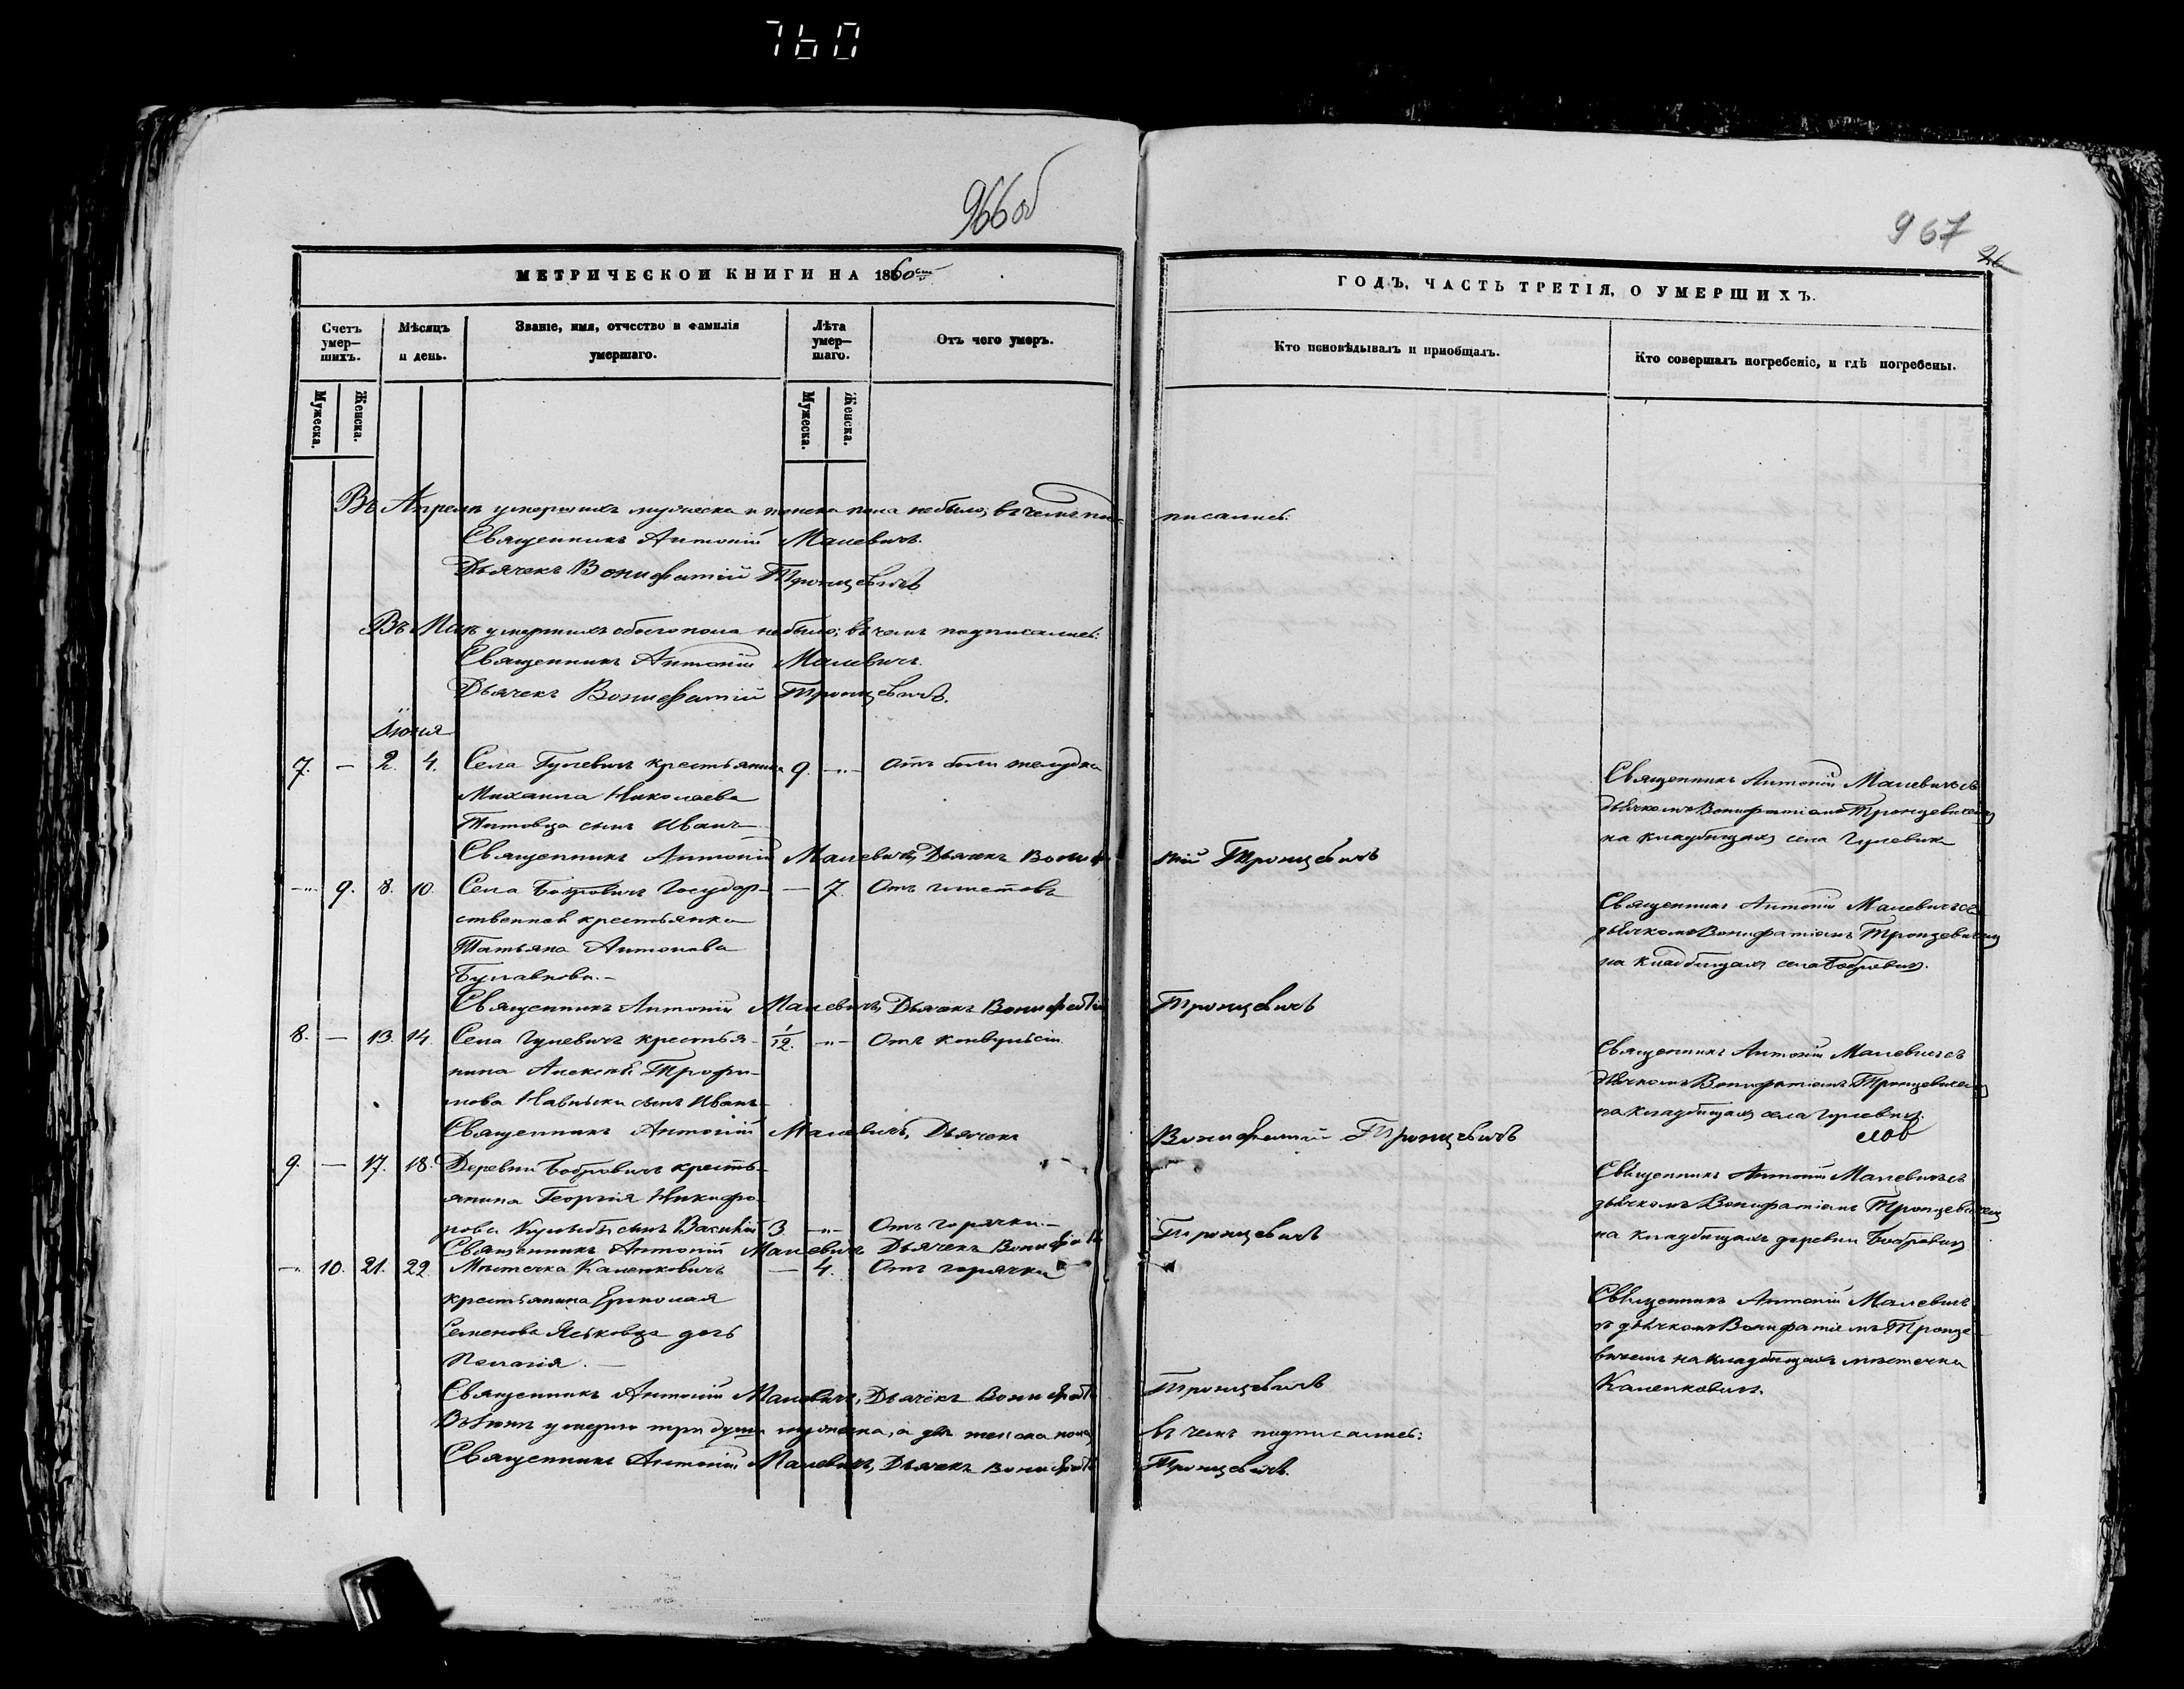 760
966об
967
26
МЕТРИЧЕСКОЙ КНИГИ НА 1860
ГОДЪ, ЧАСТЬ ТРЕТІЯ, О УМЕРШИХЪ.
Счетъ умер—шихъ.
Мѣсяцъ и день.
Званіе, имя, отчество и фамилія умершаго.
Лѣта умер—шаго.
Отъ чего умеръ.
Кто исповѣдывалъ и пріобщалъ.
Кто совершалъ погребеніе, и гдѣ погребены.
Мужеска.
Женска.
Мужеска.
Женска.
Въ Апрелѣ умершихъ мужеска и женска пола небыло; въ чемъ под-
писались:
Священникъ Антоній Малевичъ.
Дьячекъ Вонифатій Тронцевичъ
Въ Маѣ умершихъ обоего пола небыло; въ чемъ подписались:
Священникъ Антоній Малевичъ.
Дьячекъ Вонифатій Тронцевичъ.
Іюня
7. — 2. 4. Села Гулевичъ крестьянина 9. —"— Отъ боли желудка
Михаила Николаева
сынъ Иванъ
Священникъ Антоній Малевичъ съ
дьячкомъ Вонифатіемъ Тронцевичемъ
на кладбищахъ села Гулевичъ
Священникъ Антоній Малевичъ, Дьячекъ Вонифа-
тій Тронцевичъ
—"— 9. 8. 10. Села Бобровичъ Государ- — 7. Отъ глистовъ
ственная крестьянка
Татьяна Антонова
Булавкова.—
Священникъ Антоній Малевичъ съ
дьячкомъ Вонифатіемъ Тронцевичемъ
на кладбищахъ села Бобровичъ.
Священникъ Антоній Малевичъ, Дьячекъ Вонифатій
Тронцевичъ
8. — 13. 14. Села Гулевичъ крестья- 1/12. —"— Отъ конвульсіи.
нина Алексѣя Трофи-
мова сынъ Иванъ
Священникъ Антоній Малевичъ съ
дьячкомъ Вонифатіемъ Тронцевичемъ
на кладбищахъ села Гулевичъ
Священникъ Антоній Малевичъ, Дьячекъ
Вонифатій Тронцевичъ
9. — 17. 18. Деревни Бобровичъ кресть-
янина Георгія Никифо-
рова сынъ Василій 3. —"— Отъ горячки.—
Священникъ Антоній Малевичъ съ
дьячкомъ Вонифатіемъ Тронцевичемъ
на кладбищахъ деревни Бобровичъ
Священникъ Антоній Малевичъ Дьячекъ Вонифатій
Тронцевичъ
—"— 10. 21. 22. Мѣстечка Каленковичъ — 4. Отъ горячки
крестьянина Ермолая
Семенова Яськовца дочь
Пелагія.—
Священникъ Антоній Малевичъ
съ дьячкомъ Вонифатіемъ Тронце-
вичемъ на кладбищахъ мѣстечка
Каленковичъ.
Священникъ Антоній Малевичъ, Дьячекъ Вонифатій
Тронцевичъ
Въ Іюнѣ умерло три души мужеска, а двѣ женска пола,
въ чемъ подписались:
Священникъ Антоній Малевичъ, Дьячекъ Вонифатій
Тронцевичъ.